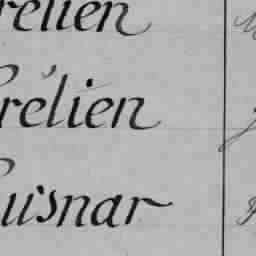 relien
rélien
uisnar